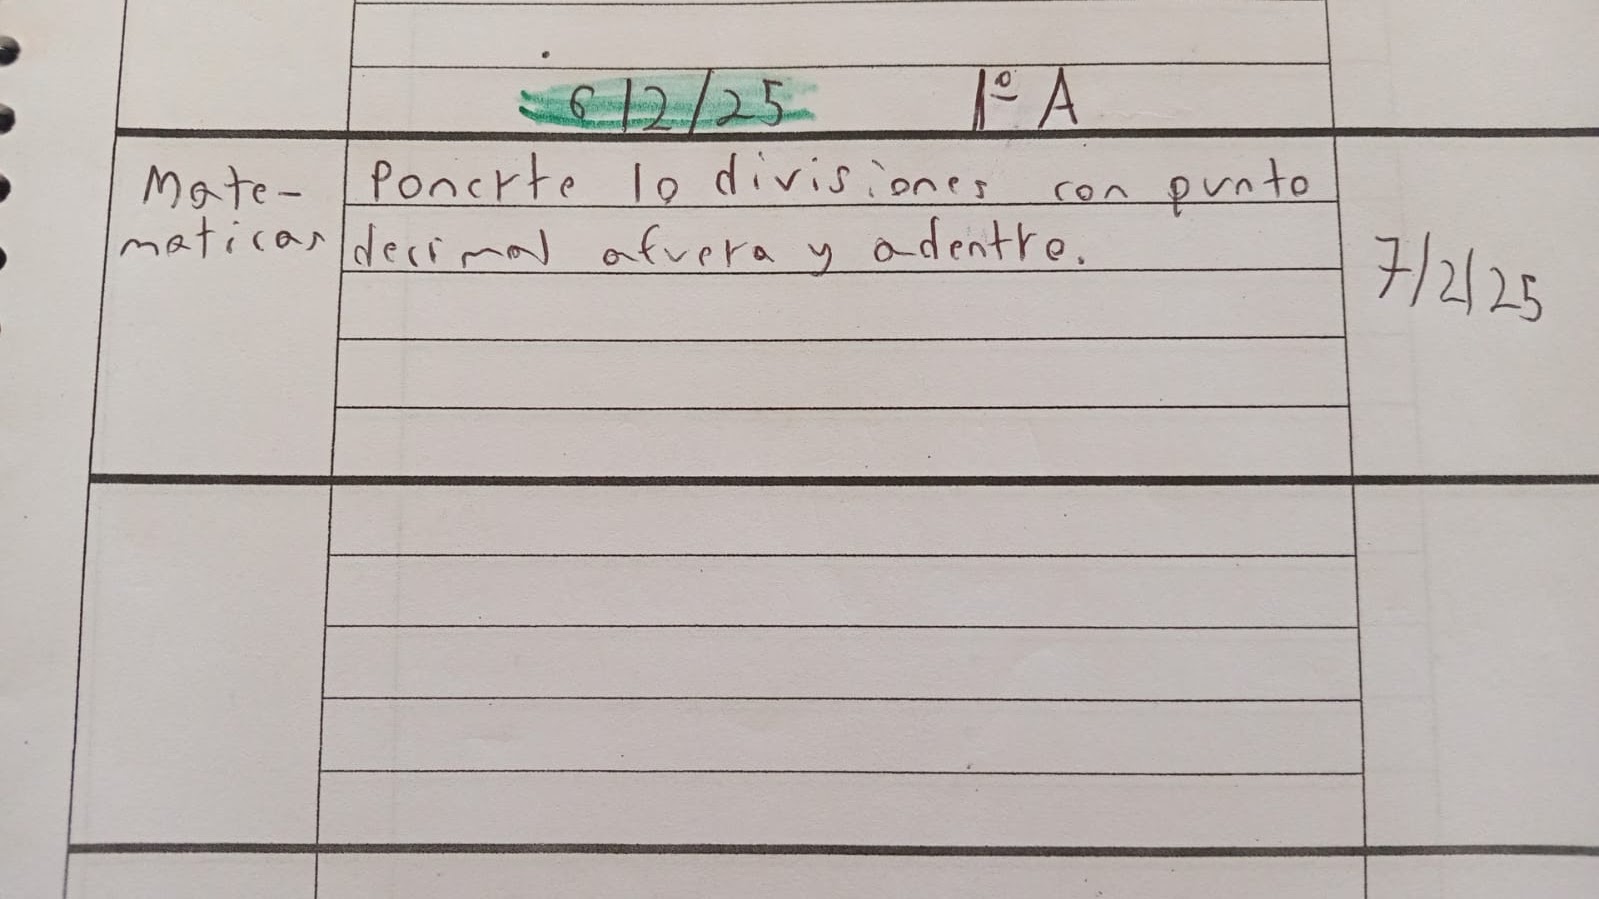 6/2/25 1º A
Mate-
maticas
Ponerte 10 divisiones con punto
decimal afuera y adentro.
7/2/25